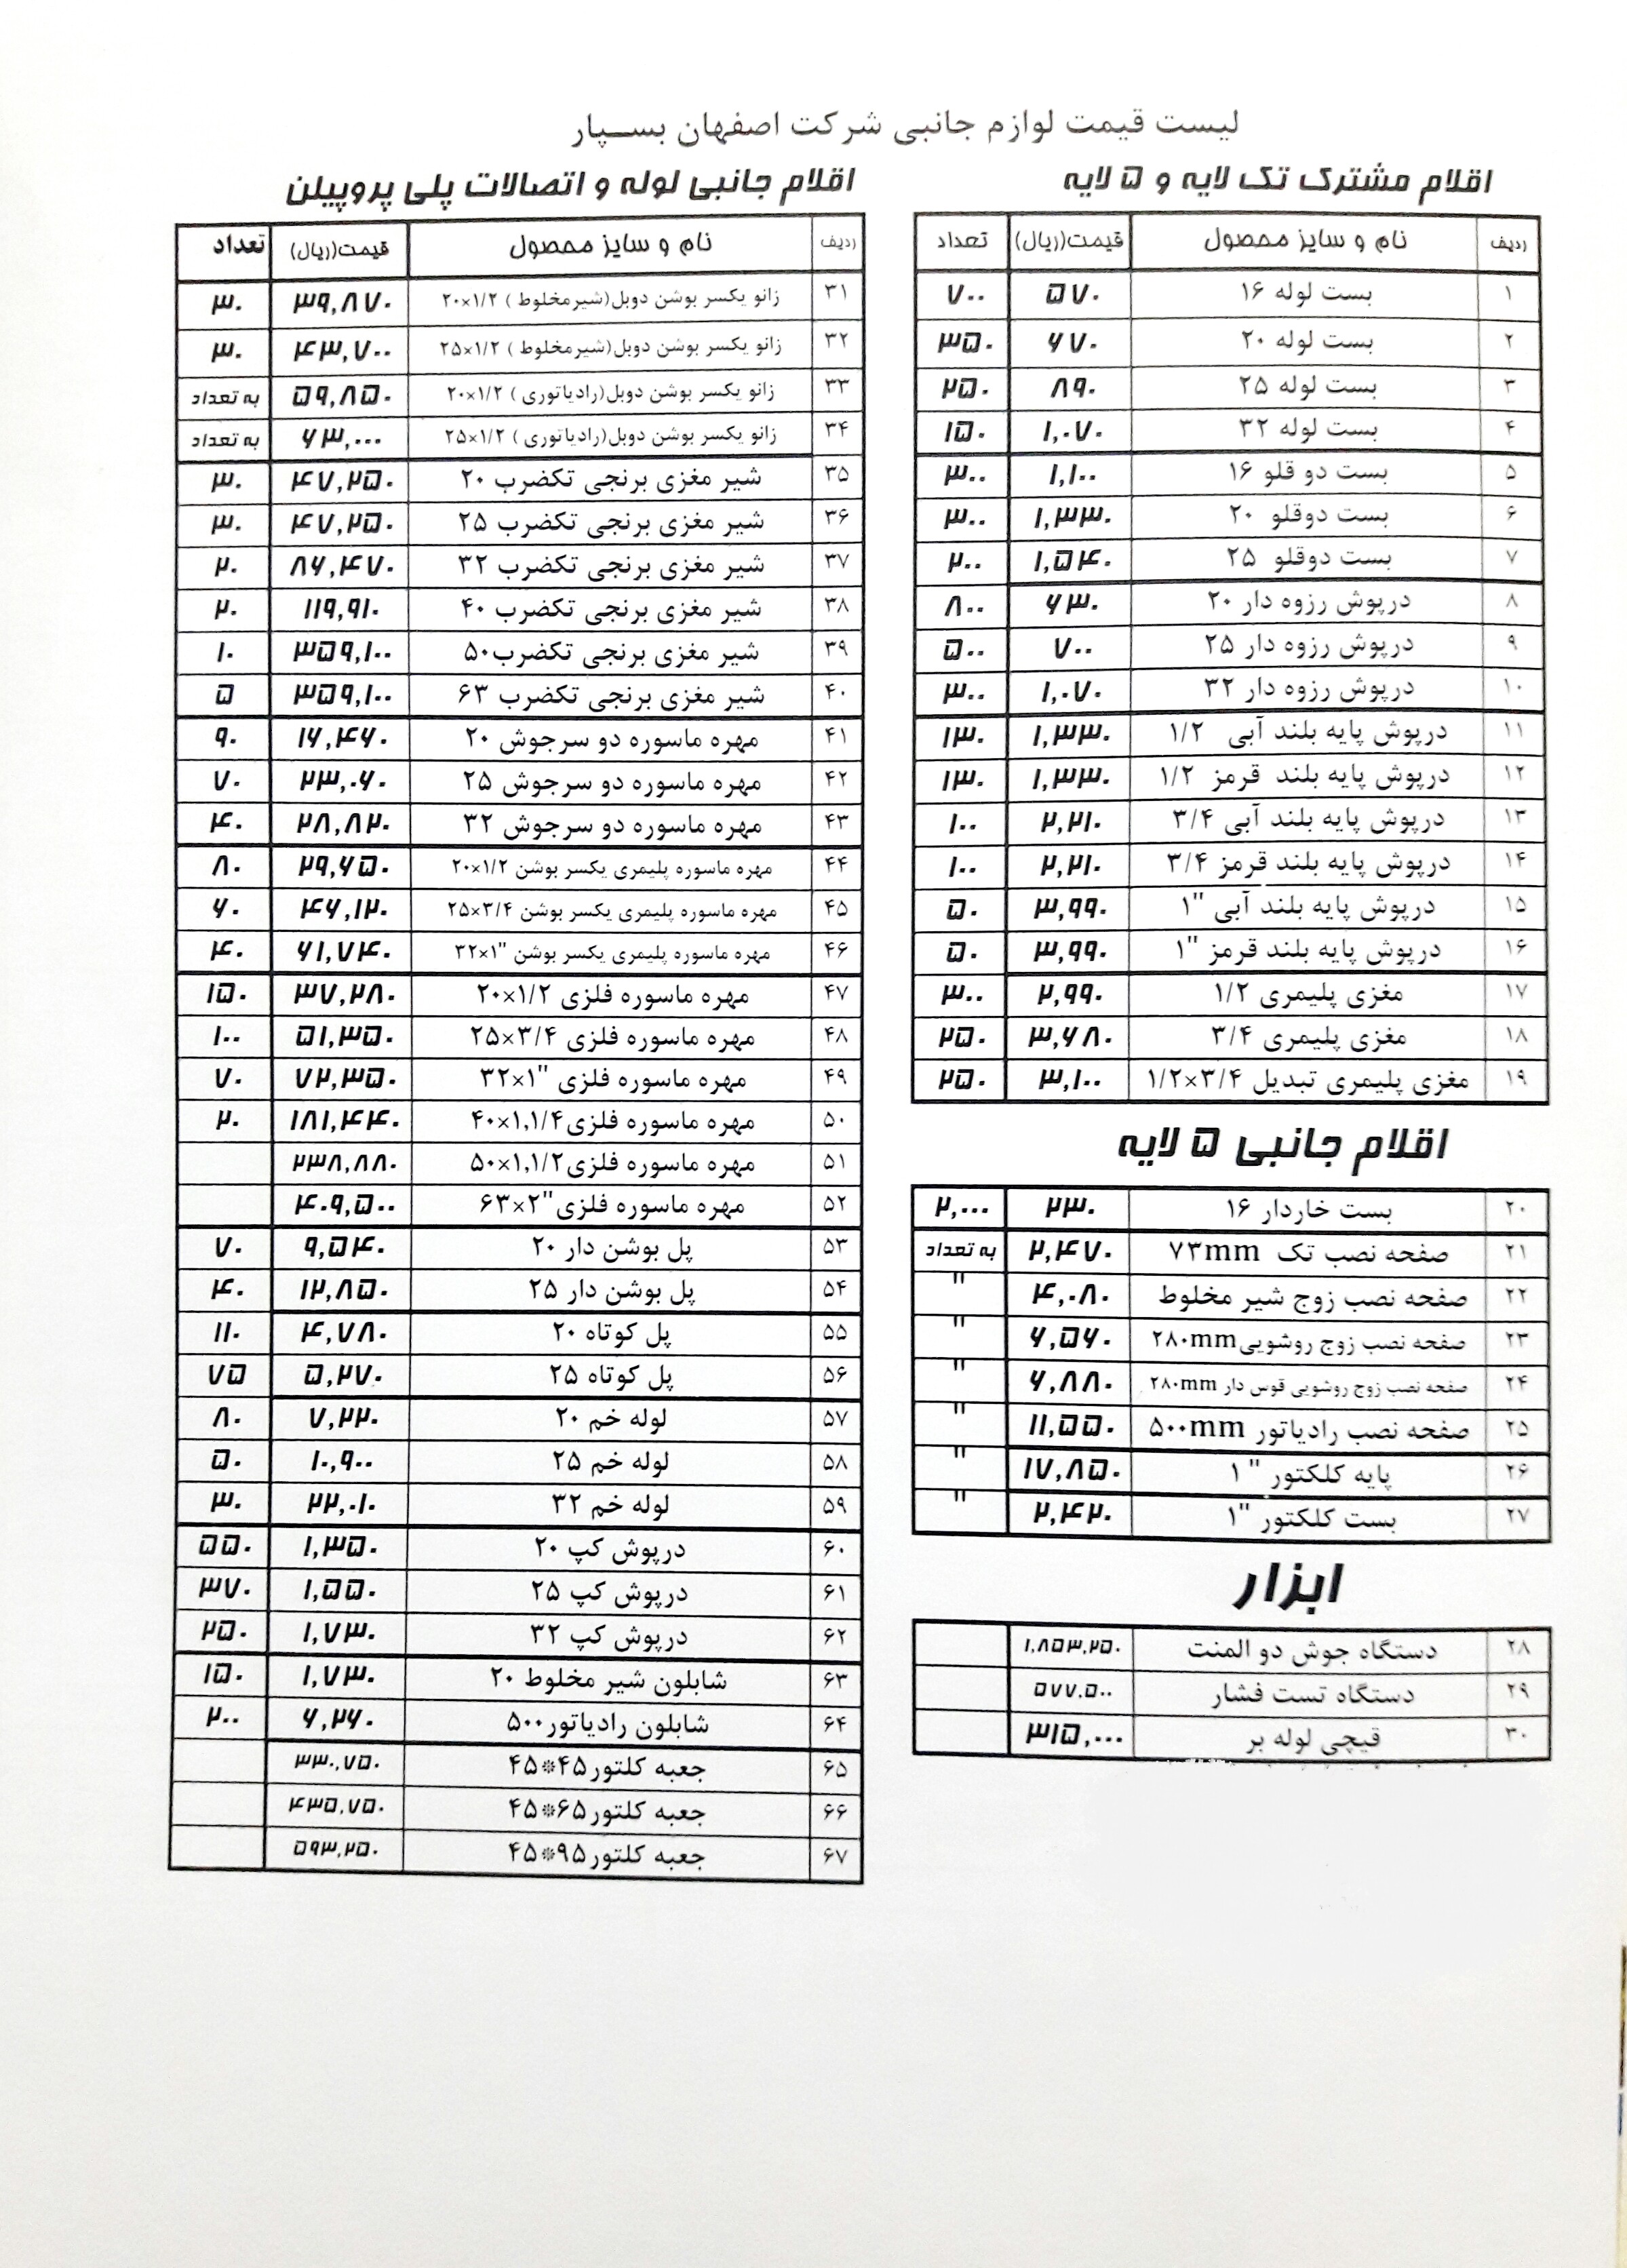 لیست قیمت لوازم جانبی شرکت اصفهان بسپار
اقلام مشترک تک لایه و ۵ لایه
ردیف نام و سایز محصول قیمت(ریال) تعداد
۱ بست لوله ۱۶ ۵۷۰ ۷۰۰
۲ بست لوله ۲۰ ۶۷۰ ۳۵۰
۳ بست لوله ۲۵ ۸۹۰ ۲۵۰
۴ بست لوله ۳۲ ۱,۰۷۰ ۱۵۰
۵ بست دو قلو ۱۶ ۱,۱۰۰ ۳۰۰
۶ بست دوقلو ۲۰ ۱,۳۳۰ ۳۰۰
۷ بست دوقلو ۲۵ ۱,۵۴۰ ۲۰۰
۸ درپوش رزوه دار ۲۰ ۶۳۰ ۸۰۰
۹ درپوش رزوه دار ۲۵ ۷۰۰ ۵۰۰
۱۰ درپوش رزوه دار ۳۲ ۱,۰۷۰ ۳۰۰
۱۱ درپوش پایه بلند آبی ۱/۲ ۱,۳۳۰ ۱۳۰
۱۲ درپوش پایه بلند قرمز ۱/۲ ۱,۳۳۰ ۱۳۰
۱۳ درپوش پایه بلند آبی ۳/۴ ۲,۲۱۰ ۱۰۰
۱۴ درپوش پایه بلند قرمز ۳/۴ ۲,۲۱۰ ۱۰۰
۱۵ درپوش پایه بلند آبی "۱ ۳,۹۹۰ ۵۰
۱۶ درپوش پایه بلند قرمز "۱ ۳,۹۹۰ ۵۰
۱۷ مغزی پلیمری ۱/۲ ۲,۹۹۰ ۳۰۰
۱۸ مغزی پلیمری ۳/۴ ۳,۶۸۰ ۲۵۰
۱۹ مغزی پلیمری تبدیل ۱/۲×۳/۴ ۳,۱۰۰ ۲۵۰
اقلام جانبی ۵ لایه
۲۰ بست خاردار ۱۶ ۲۳۰ ۲,۰۰۰
۲۱ صفحه نصب تک ۷۳mm ۲,۴۷۰ به تعداد
۲۲ صفحه نصب زوج شیر مخلوط ۴,۰۸۰ "
۲۳ صفحه نصب زوج روشویی ۲۸۰mm ۶,۵۶۰ "
۲۴ صفحه نصب زوج روشویی قوس دار ۲۸۰mm ۶,۸۸۰ "
۲۵ صفحه نصب رادیاتور ۵۰۰mm ۱۱,۵۵۰ "
۲۶ پایه کلکتور " ۱ ۱۷,۸۵۰ "
۲۷ بست کلکتور "۱ ۲,۴۲۰ "
ابزار
۲۸ دستگاه جوش دو المنت ۱,۸۵۳,۲۵۰
۲۹ دستگاه تست فشار ۵۷۷,۵۰۰
۳۰ قیچی لوله بر ۳۱۵,۰۰۰
اقلام جانبی لوله و اتصالات پلی پروپیلن
ردیف نام و سایز محصول قیمت(ریال) تعداد
۳۱ زانو یکسر بوشن دوبل(شیرمخلوط ) ۲۰×۱/۲ ۳۹,۸۷۰ ۳۰
۳۲ زانو یکسر بوشن دوبل(شیرمخلوط ) ۲۵×۱/۲ ۴۳,۷۰۰ ۳۰
۳۳ زانو یکسر بوشن دوبل(رادیاتوری ) ۲۰×۱/۲ ۵۹,۸۵۰ به تعداد
۳۴ زانو یکسر بوشن دوبل(رادیاتوری ) ۲۵×۱/۲ ۶۳,۰۰۰ به تعداد
۳۵ شیر مغزی برنجی تکضرب ۲۰ ۴۷,۲۵۰ ۳۰
۳۶ شیر مغزی برنجی تکضرب ۲۵ ۴۷,۲۵۰ ۳۰
۳۷ شیر مغزی برنجی تکضرب ۳۲ ۸۶,۴۷۰ ۲۰
۳۸ شیر مغزی برنجی تکضرب ۴۰ ۱۱۹,۹۱۰ ۲۰
۳۹ شیر مغزی برنجی تکضرب۵۰ ۳۵۹,۱۰۰ ۱۰
۴۰ شیر مغزی برنجی تکضرب ۶۳ ۳۵۹,۱۰۰ ۵
۴۱ مهره ماسوره دو سرجوش ۲۰ ۱۶,۴۶۰ ۹۰
۴۲ مهره ماسوره دو سرجوش ۲۵ ۲۳,۰۶۰ ۷۰
۴۳ مهره ماسوره دو سرجوش ۳۲ ۲۸,۸۲۰ ۴۰
۴۴ مهره ماسوره پلیمری یکسر بوشن ۲۰×۱/۲ ۲۹,۶۵۰ ۸۰
۴۵ مهره ماسوره پلیمری یکسر بوشن ۲۵×۳/۴ ۴۶,۱۲۰ ۶۰
۴۶ مهره ماسوره پلیمری یکسر بوشن "۳۲×۱ ۶۱,۷۴۰ ۴۰
۴۷ مهره ماسوره فلزی ۲۰×۱/۲ ۳۷,۲۸۰ ۱۵۰
۴۸ مهره ماسوره فلزی ۲۵×۳/۴ ۵۱,۳۵۰ ۱۰۰
۴۹ مهره ماسوره فلزی "۳۲×۱ ۷۲,۳۵۰ ۷۰
۵۰ مهره ماسوره فلزی۴۰×۱,۱/۴ ۱۸۱,۴۴۰ ۲۰
۵۱ مهره ماسوره فلزی۵۰×۱,۱/۲ ۲۳۸,۸۸۰
۵۲ مهره ماسوره فلزی"۶۳×۲ ۴۰۹,۵۰۰
۵۳ پل بوشن دار ۲۰ ۹,۵۴۰ ۷۰
۵۴ پل بوشن دار ۲۵ ۱۲,۸۵۰ ۴۰
۵۵ پل کوتاه ۲۰ ۴,۷۸۰ ۱۱۰
۵۶ پل کوتاه ۲۵ ۵,۲۷۰ ۷۵
۵۷ لوله خم ۲۰ ۷,۲۲۰ ۸۰
۵۸ لوله خم ۲۵ ۱۰,۹۰۰ ۵۰
۵۹ لوله خم ۳۲ ۲۲,۰۱۰ ۳۰
۶۰ درپوش کپ ۲۰ ۱,۳۵۰ ۵۵۰
۶۱ درپوش کپ ۲۵ ۱,۵۵۰ ۳۷۰
۶۲ درپوش کپ ۳۲ ۱,۷۳۰ ۲۵۰
۶۳ شابلون شیر مخلوط ۲۰ ۱,۷۳۰ ۱۵۰
۶۴ شابلون رادیاتور۵۰۰ ۶,۲۶۰ ۲۰۰
۶۵ جعبه کلتور۴۵*۴۵ ۳۳۰,۷۵۰
۶۶ جعبه کلتور۶۵*۴۵ ۴۳۵,۷۵۰
۶۷ جعبه کلتور۹۵*۴۵ ۵۹۳,۲۵۰